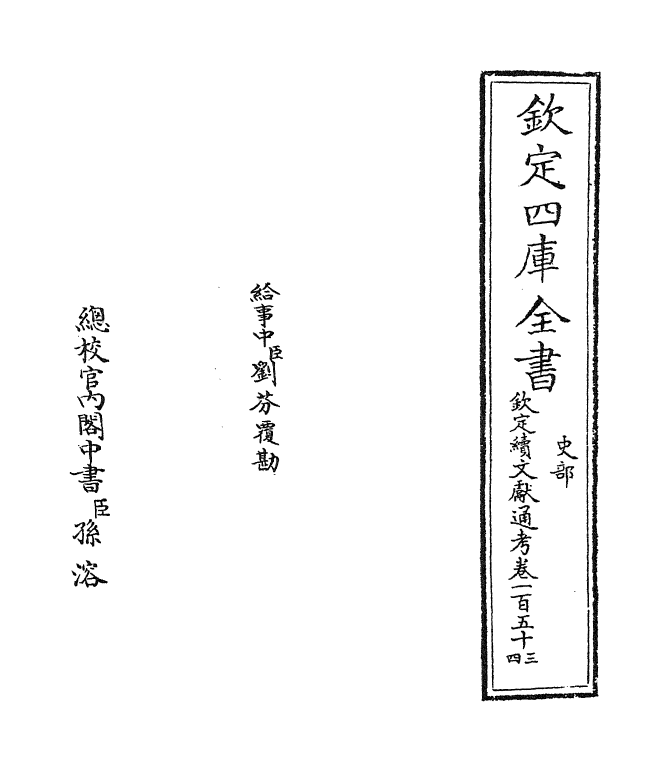 欽定四庫全書
史部
欽定續文獻通考卷一百五十三四
給事中臣劉芬覆勘
總校官内閣中書臣孫溶